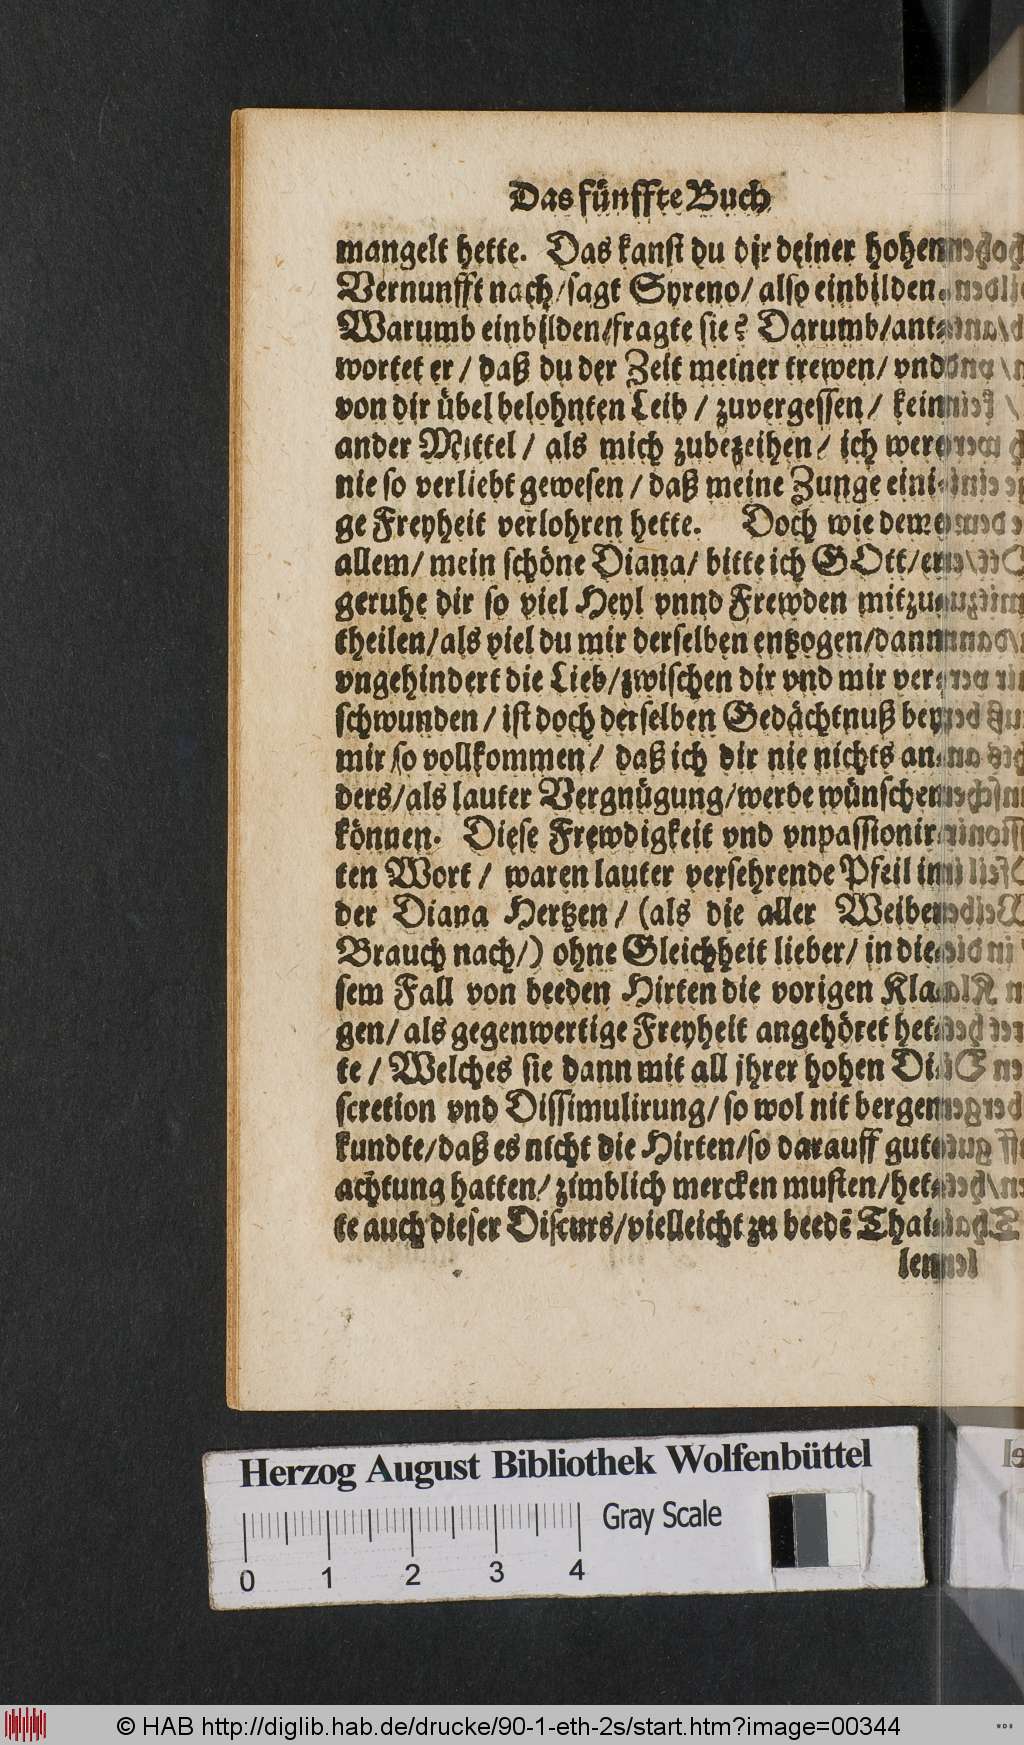 Das fünffte Buch
mangelt hette. Das kanst du dir deiner hohen
Vernunfft nach/sagt Syreno/ also einbilden.
Warumb einbilden/fragte sie? Darumb/ant-
wortet er/ daß du der Zeit meiner trewen/ vnd
von dir übel belohnten Lieb/ zuvergessen/ kein
ander Mittel/ als mich zubezeihen/ ich were
nie so verliebt gewesen/ daß meine Zunge eini-
ge Freyheit verlohren hette. Doch wie deme
allem/ mein schöne Diana/ bitte ich GOtt/er
geruhe dir so viel Heyl vnnd Frewden mitzu-
theilen/als viel du mir derselben entzogen/dann
vngehindert die Lieb/zwischen dir vnd mir ver-
schwunden/ ist doch derselben Gedächtnuß bey
mir so vollkommen/ daß ich dir nie nichts an-
ders/als lauter Vergnügung/werde wünschen
können. Diese Frewdigkeit vnd vnpassionir-
ten Wort/ waren lauter versehrende Pfeil in
der Diana Hertzen/ (als die aller Weiber
Brauch nach/) ohne Gleichheit lieber/ in die-
sem Fall von beeden Hirten die vorigen Kla-
gen/ als gegenwertige Freyheit angehöret het-
te/ Welches sie dann mit all jhrer hohen Di-
scretion vnd Dissimulirung/ so wol nit bergen
kundte/daß es nicht die Hirten/so darauff gute
achtung hatten/ zimblich mercken musten/het-
te auch dieser Discurs/vielleicht zu beedē Thai-
len
Herzog August Bibliothek Wolfenbüttel
Gray Scale
0 1 2 3 4
© HAB http://diglib.hab.de/drucke/90-1-eth-2s/start.htm?image=00344